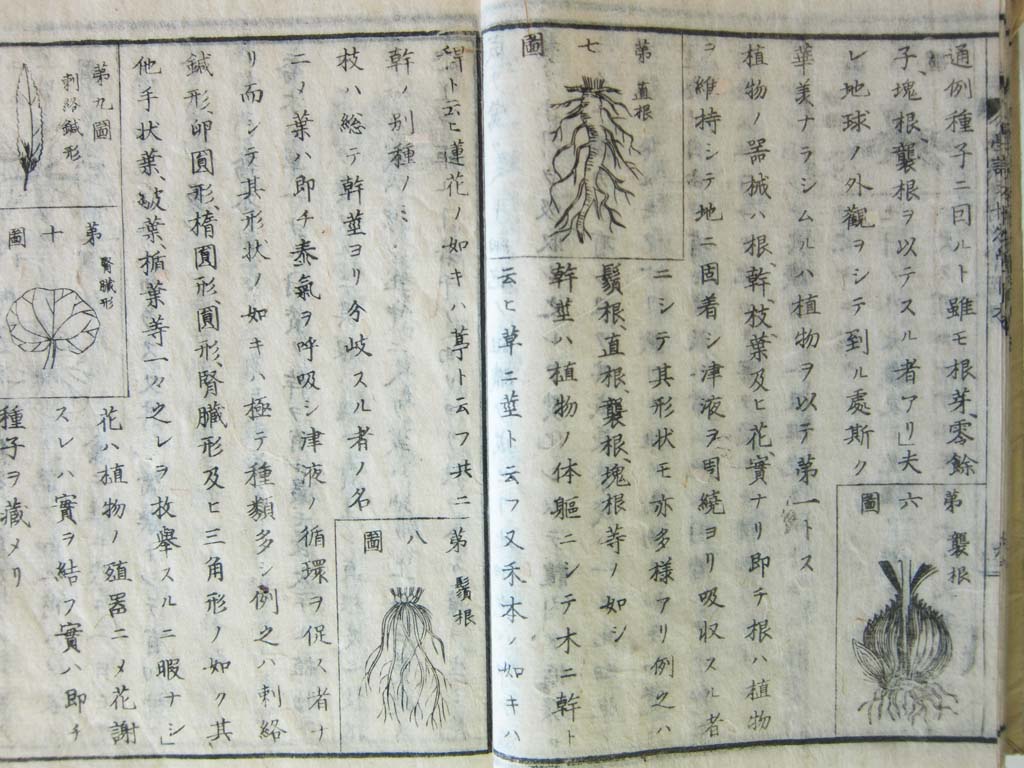 通例種子ニ回ルト雖モ根芽、零餘
子、塊根、襲根ヲ以テスル者アリ」夫
レ地球ノ外觀ヲシテ到ル處斯ク
華美ナラシムルハ植物ヲ以テ第一トス
植物ノ器械ハ根、幹、枝、葉及ヒ花、實ナリ即チ根ハ植物
ヲ維持シテ地ニ固着シ津液ヲ周繞ヨリ吸収スル者
ニシテ其形状モ亦多様アリ例之ハ
鬚根、直根、襲根、塊根等ノ如シ
幹莖ハ植物ノ体軀ニシテ木ニ幹ト
云ヒ草ニ莖ト云フ又禾本ノ如キハ
第六圖
襲根
第七圖
直根
稈ト云ヒ蓮花ノ如キハ葶ト云フ共ニ
幹ノ別種ノミ
枝ハ総テ幹莖ヨリ分岐スル者ノ名
ニノ葉ハ即チ泰氣ヲ呼吸シ津液ノ循環ヲ促ス者ナ
リ而シテ其形状ノ如キハ極テ種類多シ例之ハ刺絡
鍼形、卵圓形、楕圓形、圓形、腎臓形及ヒ三角形ノ如ク其
他手状葉、岐葉、楯葉等一々之レヲ枚舉スルニ暇ナシ」
花ハ植物ノ殖器ニメ花謝
スレハ實ヲ結フ實ハ即チ
種子ヲ藏メリ
第八圖
鬚根
第九圖
刺絡鍼形
第十圖
腎臓形